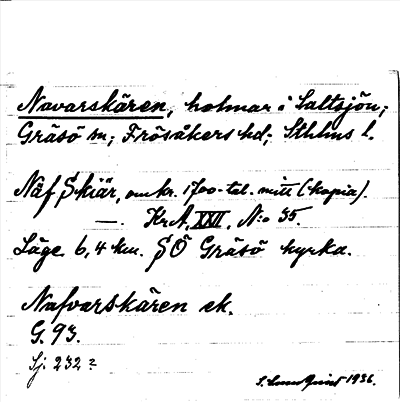 Navarskären, holmar i Saltsjön;
Gräsö sn; Frösåkers hd; Sthlms l.
Näf Skiär, omkr. 1700-tal. mitt (kopia).
—. KrA, XXII, N:o 35.
Läge 6,4 km. SÖ Gräsö kyrka.
Nafvarskären ek.
G. 93.
Sj. 232?
S. Lundquist 1936.